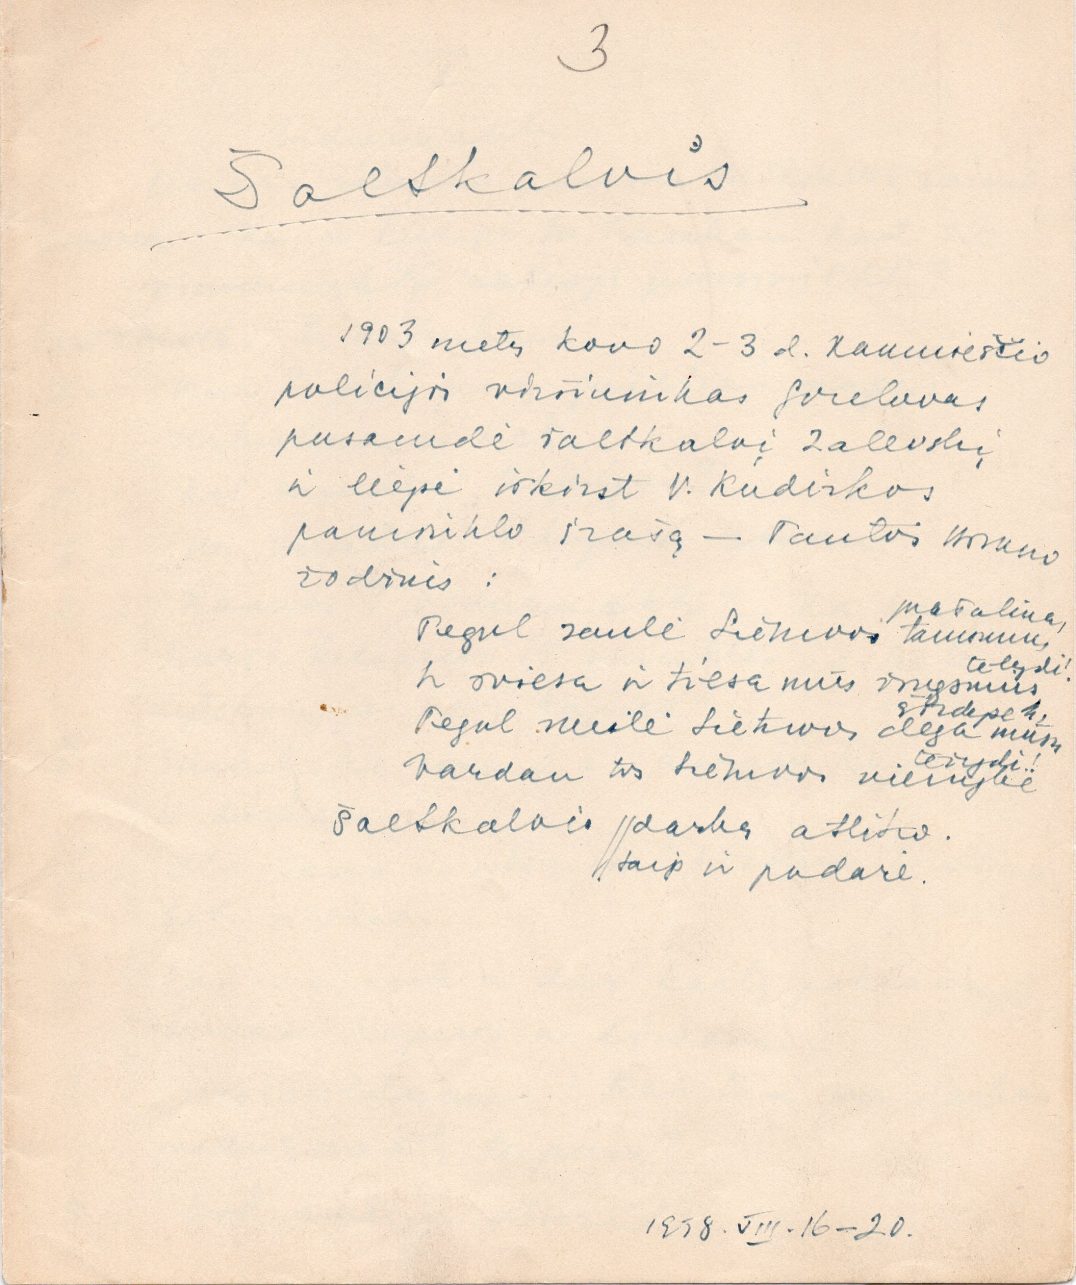 3
Šaltkalvis
1903 metų kovo 2-3 d. Naumiesčio
policijos viršininkas Gorelovas
pasamdė šaltkalvį Zalevskį
ir liepė iškirst V. Kudirkos
paminklo įrašą — Tautos Himno
žodžius :
Tegul saulė Lietuvos tamsumus prašalina,
Ir šviesa ir tiesa mūs žingsnius telydi!
Tegul meilė Lietuvos dega mūsų širdyse
Vardan tos Lietuvos vienybė težydi!
Šaltkalvis // darbą atliko.
// taip ir padarė.
1998. VIII. 16-20.